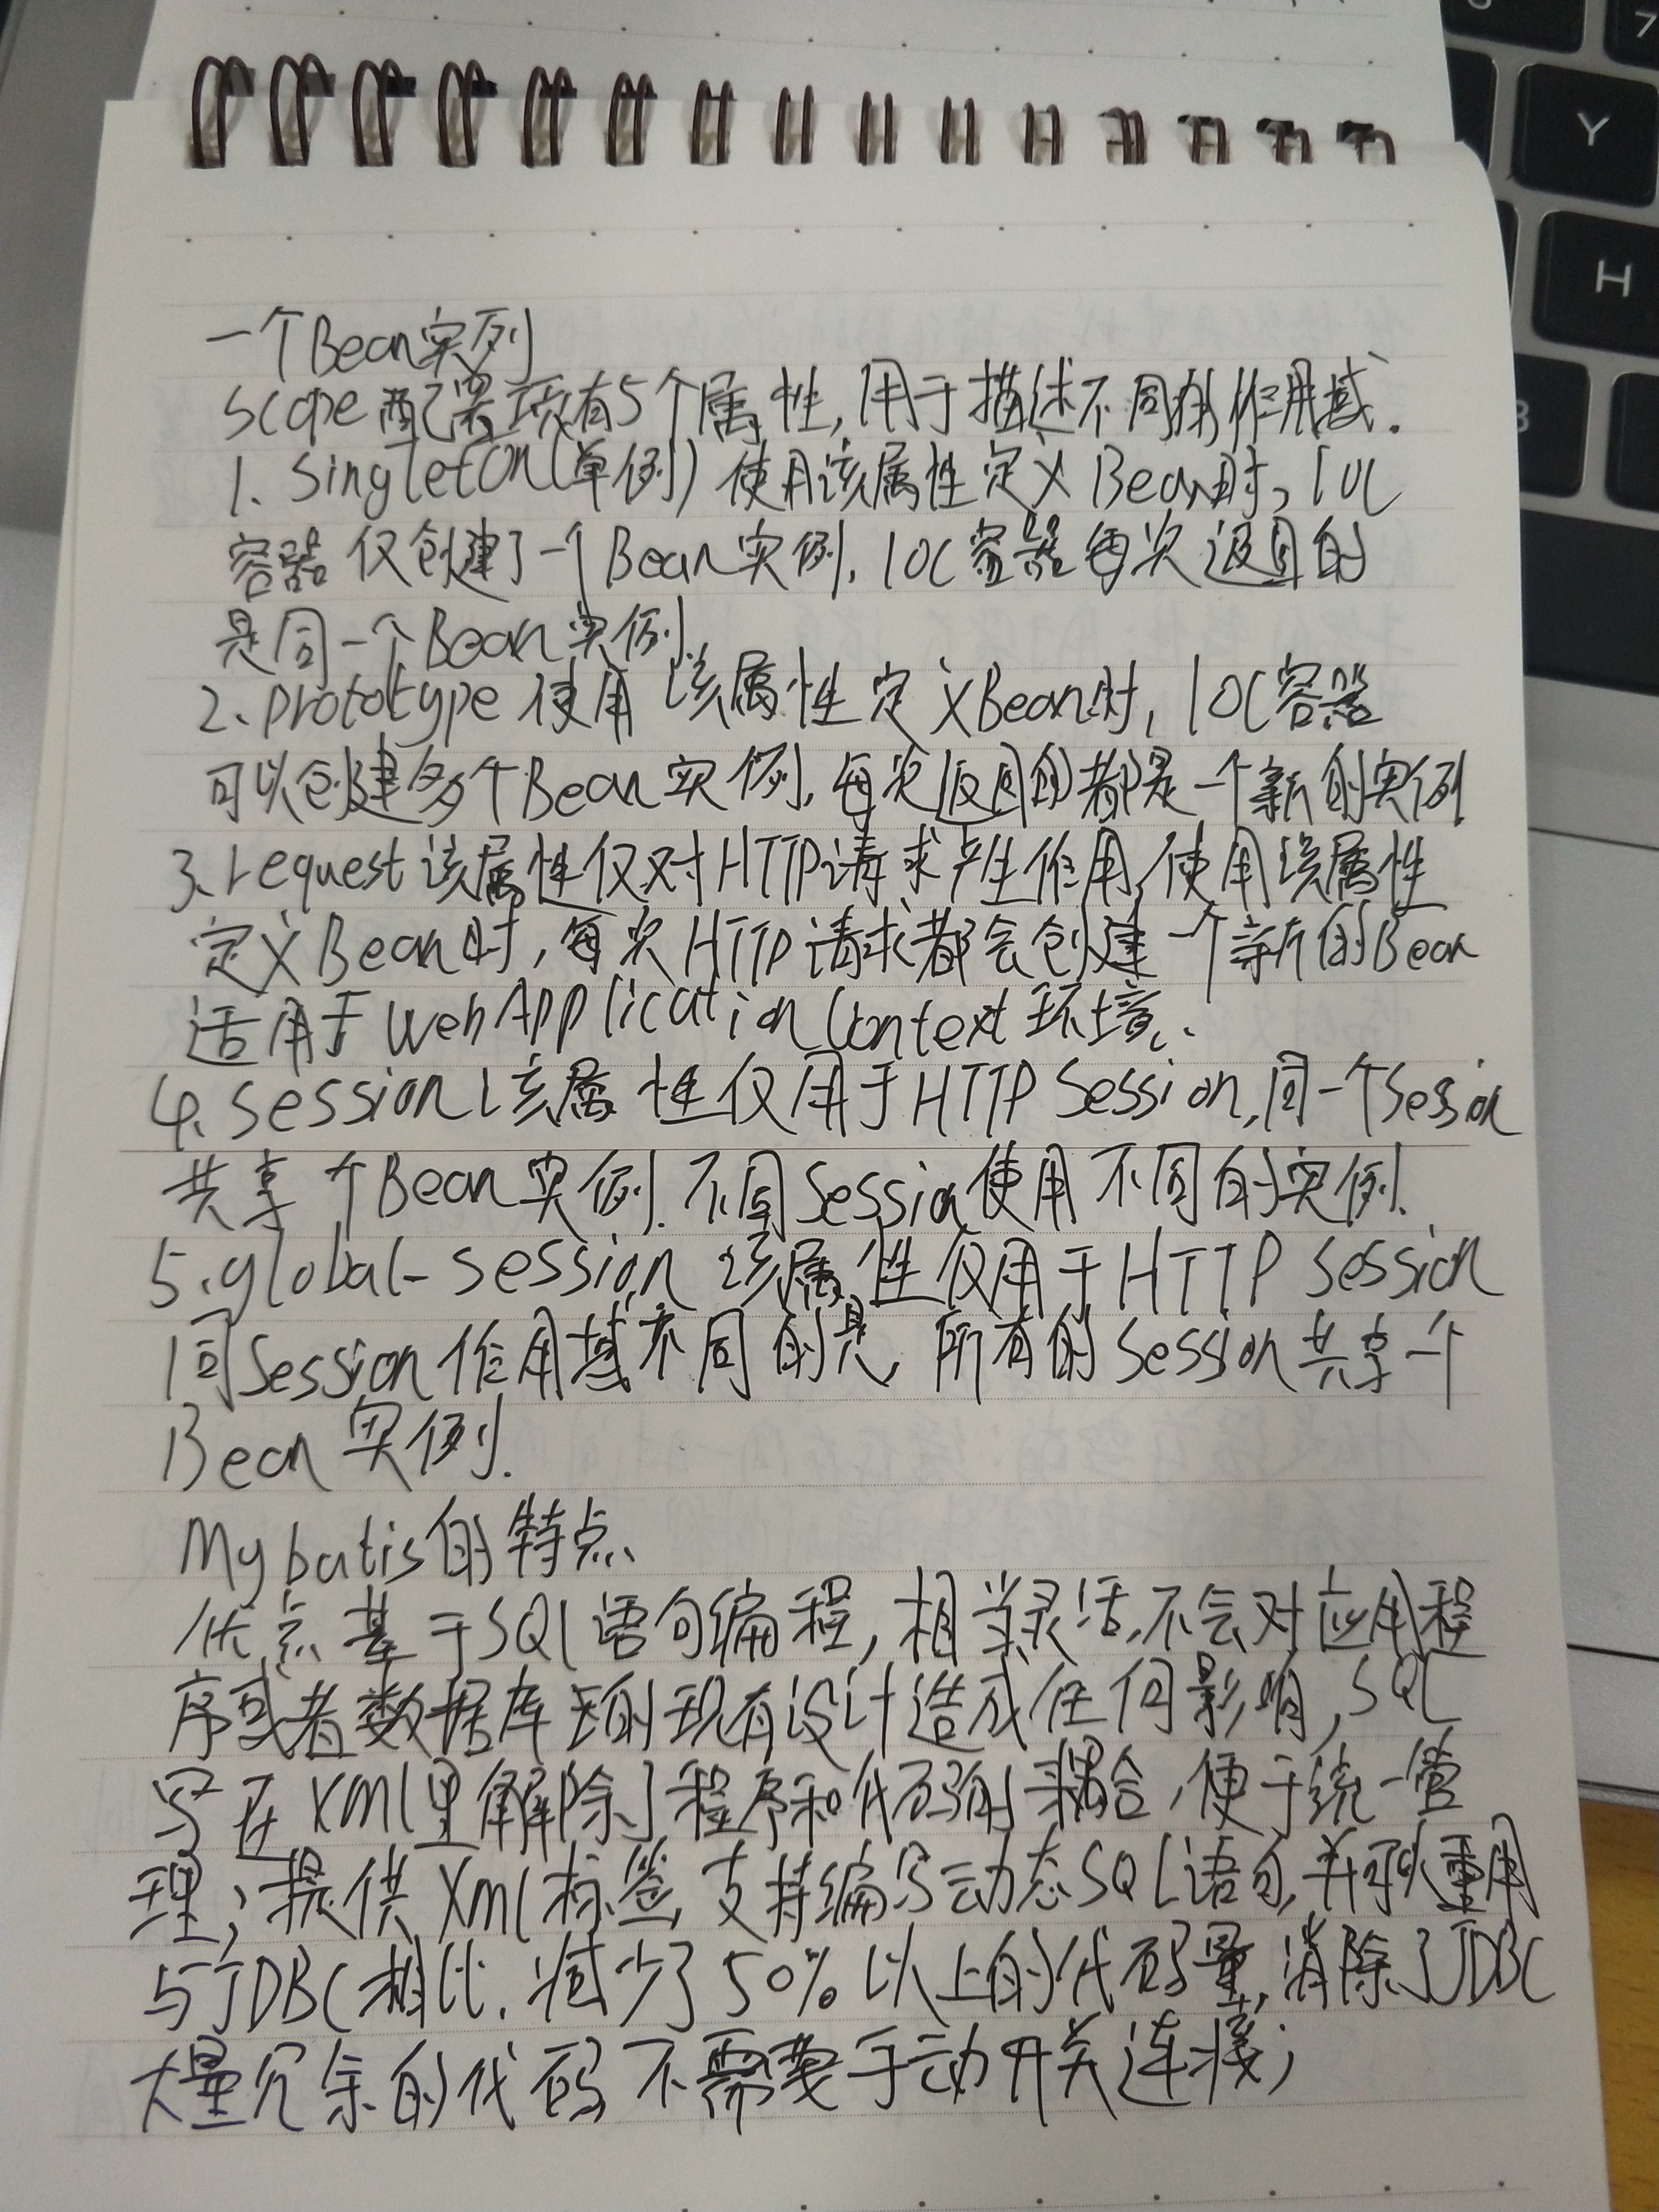 一个Bean实列
Scope配置项有5个属性,用于描述不同的作用域.
1、Singleton(单例)使用该属性定义Bean时,IOC
容器仅创建了一个Bean实例,IOC容器每次返回的
是同一个Bean实例.
2、prototype使用该属性定义Bean时,IOC容器
可以创建多个Bean实例,每次返回的都是一个新的实例
3、request该属性仅对HTTP请求产生作用,使用该属性
定义Bean时,每次HTTP请求都会创建一个新的Bean
适用于WebApplicationContext环境.
4、session该属性仅用于HTTP Session,同一个Session
共享个Bean实例.不同Session使用不同的实例.
5.global-session该属性仅用于HTTP Session
同Session作用域不同的是,所有的Session共享一个
Bean实例.
Mybatis的特点、
优点基于SQL语句编程,相当灵活,不会对应用程
序或者数据库的现有设计造成任何影响,SQL
写在XML里解除了程序和代码的耦合,便于统一管
理;提供Xml标签,支持编写动态SQL语句,并可重用
与JDBC相比,减少了50%以上的代码量,消除了JDBC
大量冗余的代码不需要手动开关连接;